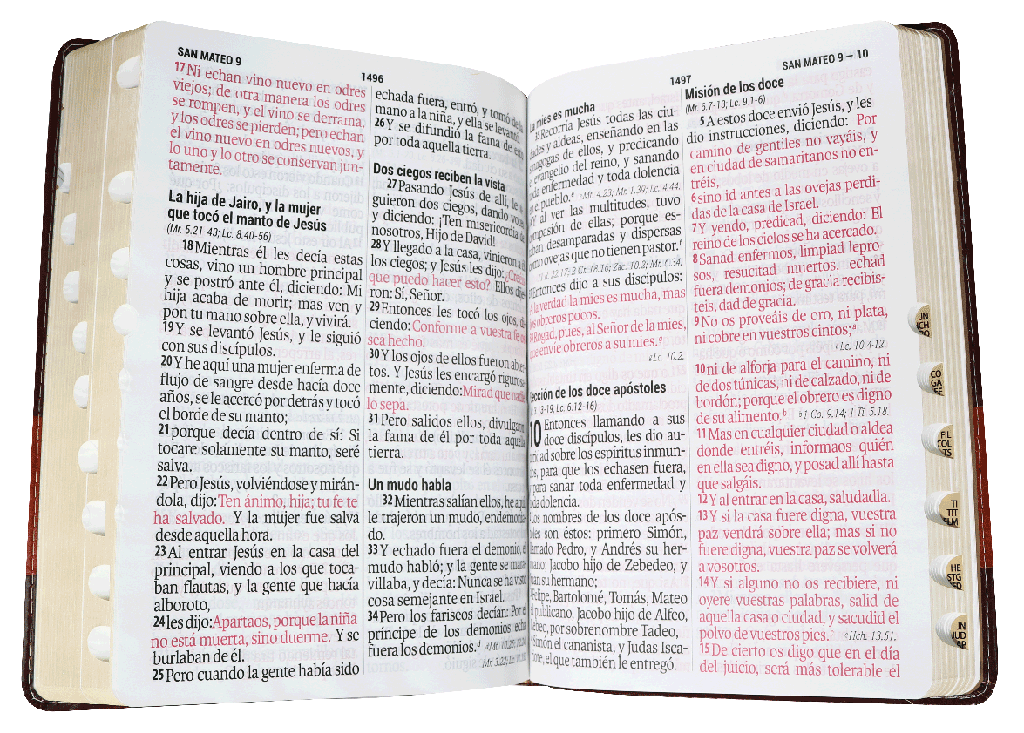 SAN MATEO 9
1496
17Ni echan vino nuevo en odres
viejos; de otra manera los odres
se rompen, y el vino se derrama,
y los odres se pierden; pero echan
el vino nuevo en odres nuevos, y
lo uno y lo otro se conservan jun-
tamente.
La hija de Jairo, y la mujer
que tocó el manto de Jesús
(Mr. 5.21-43; Lc. 8.40-56)
18Mientras él les decía estas
cosas, vino un hombre principal
y se postró ante él, diciendo: Mi
hija acaba de morir; mas ven y
pon tu mano sobre ella, y vivirá.
19Y se levantó Jesús, y le siguió
con sus discípulos.
20Y he aquí una mujer enferma de
flujo de sangre desde hacía doce
años, se le acercó por detrás y tocó
el borde de su manto;
21porque decía dentro de sí: Si
tocare solamente su manto, seré
salva.
22Pero Jesús, volviéndose y mirán-
dola, dijo: Ten ánimo, hija; tu fe te
ha salvado. Y la mujer fue salva
desde aquella hora.
23Al entrar Jesús en la casa del
principal, viendo a los que toca-
ban flautas, y la gente que hacía
alboroto,
24les dijo: Apartaos, porque la niña
no está muerta, sino duerme. Y se
burlaban de él.
25Pero cuando la gente había sido
echada fuera, entró, y tomó de la
mano a la niña, y ella se levantó.
26Y se difundió la fama de esto
por toda aquella tierra.
Dos ciegos reciben la vista
27Pasando Jesús de allí, le si-
guieron dos ciegos, dando voces
y diciendo: ¡Ten misericordia de
nosotros, Hijo de David!
28Y llegado a la casa, vinieron a
los ciegos; y Jesús les dijo: ¿Creéis
que puedo hacer esto? Ellos dije-
ron: Sí, Señor.
29Entonces les tocó los ojos, di-
ciendo: Conforme a vuestra fe os
sea hecho.
30Y los ojos de ellos fueron abier-
tos. Y Jesús les encargó rigurosa-
mente, diciendo: Mirad que nadie
lo sepa.
31Pero salidos ellos, divulgaron
la fama de él por toda aquella
tierra.
Un mudo habla
32Mientras salían ellos, he aquí
le trajeron un mudo, endemonia-
do.
33Y echado fuera el demonio, el
mudo habló; y la gente se mara-
villaba, y decía: Nunca se ha visto
cosa semejante en Israel.
34Pero los fariseos decían: Por el
príncipe de los demonios echa
fuera los demonios.
1497
SAN MATEO 9 – 10
a mies es mucha
35Recorría Jesús todas las ciu-
dades y aldeas, enseñando en las
nagogas de ellos, y predicando
evangelio del reino, y sanando
da enfermedad y toda dolencia
e pueblo. Mt. 4.23; Mr. 1.39; Lc. 4.44.
Y al ver las multitudes, tuvo
mpasión de ellas; porque es-
ban desamparadas y dispersas
omo ovejas que no tienen pastor.
Entonces dijo a sus discípulos:
la verdad la mies es mucha, mas
os obreros pocos.
Rogad, pues, al Señor de la mies,
que envíe obreros a su mies.
Lc. 10.2.
ección de los doce apóstoles
3-19; Lc. 6.12-16)
10 Entonces llamando a sus
doce discípulos, les dio au-
ridad sobre los espíritus inmun-
s, para que los echasen fuera,
para sanar toda enfermedad y
da dolencia.
Los nombres de los doce após-
les son éstos: primero Simón,
amado Pedro, y Andrés su her-
ano; Jacobo hijo de Zebedeo, y
an su hermano;
elipe, Bartolomé, Tomás, Mateo
publicano, Jacobo hijo de Alfeo,
ebeo, por sobrenombre Tadeo,
imón el cananista, y Judas Isca-
ote, el que también le entregó.
Misión de los doce
(Mr. 6.7-13; Lc. 9.1-6)
5A estos doce envió Jesús, y les
dio instrucciones, diciendo: Por
camino de gentiles no vayáis, y
en ciudad de samaritanos no en-
tréis,
6sino id antes a las ovejas perdi-
das de la casa de Israel.
7Y yendo, predicad, diciendo: El
reino de los cielos se ha acercado.
8Sanad enfermos, limpiad lepro-
sos, resucitad muertos, echad
fuera demonios; de gracia recibis-
teis, dad de gracia.
9No os proveáis de oro, ni plata,
ni cobre en vuestros cintos;a
aLc. 10.4-12.
10ni de alforja para el camino, ni
de dos túnicas, ni de calzado, ni de
bordón; porque el obrero es digno
de su alimento.b b1 Co. 9.14; 1 Ti. 5.18.
11Mas en cualquier ciudad o aldea
donde entréis, informaos quién
en ella sea digno, y posad allí hasta
que salgáis.
12Y al entrar en la casa, saludadla.
13Y si la casa fuere digna, vuestra
paz vendrá sobre ella; mas si no
fuere digna, vuestra paz se volverá
a vosotros.
14Y si alguno no os recibiere, ni
oyere vuestras palabras, salid de
aquella casa o ciudad, y sacudid el
polvo de vuestros pies. cHch. 13.51.
15De cierto os digo que en el día
del juicio, será más tolerable el